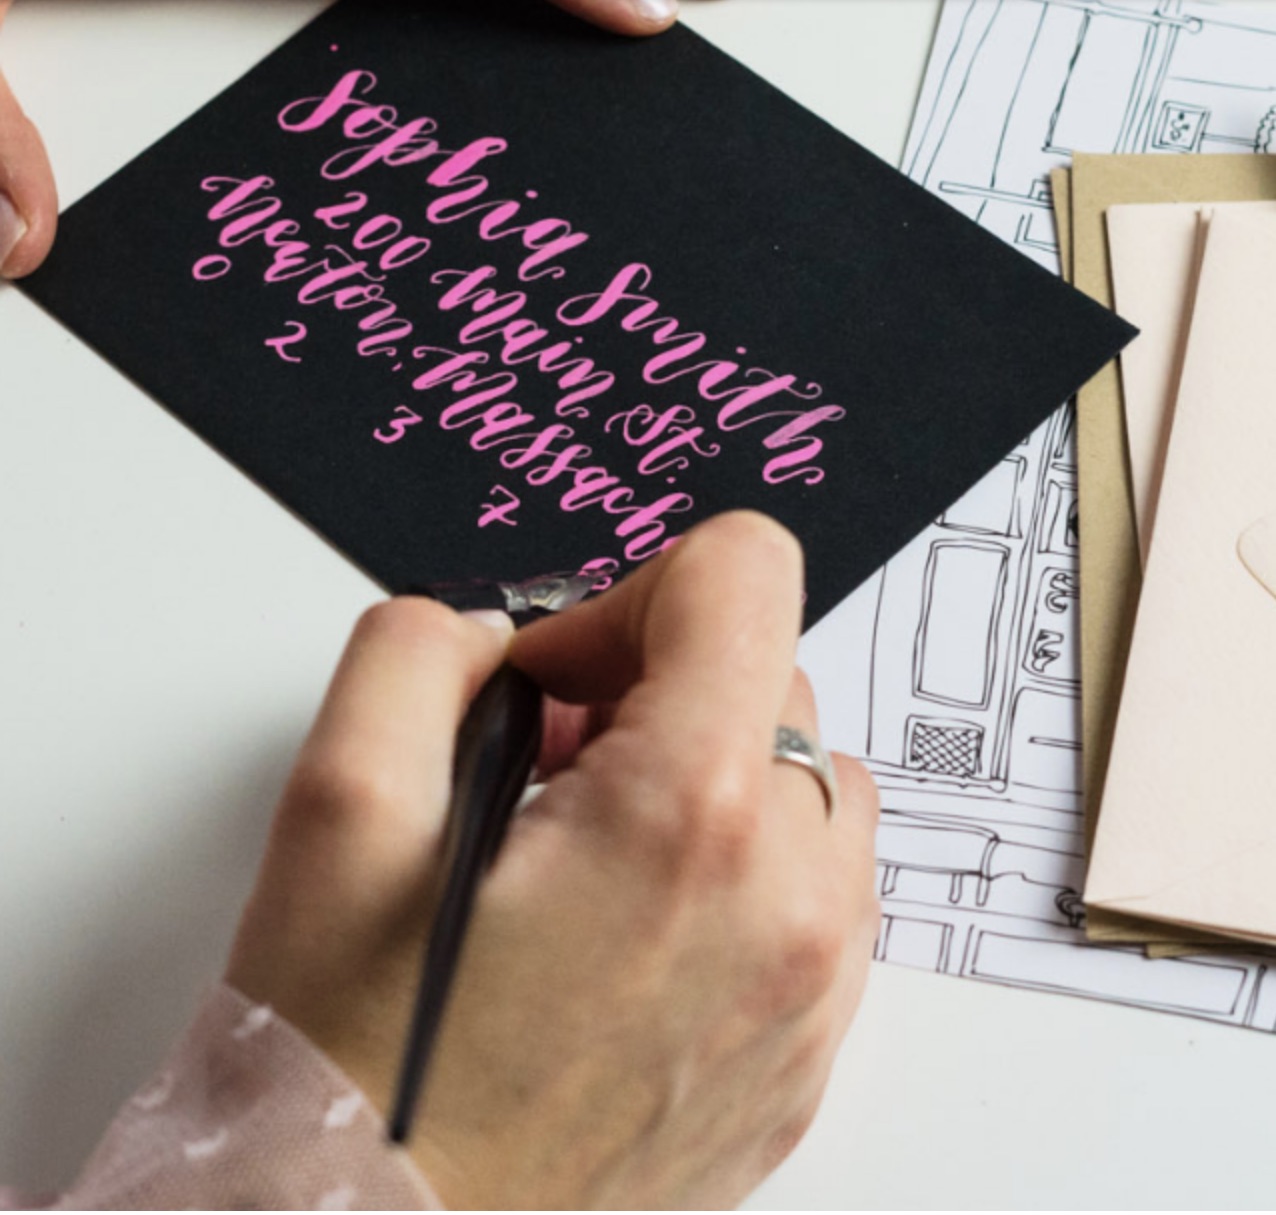 Sophia Smith
200 Main St.
Newton, Massach
0 2 3 7